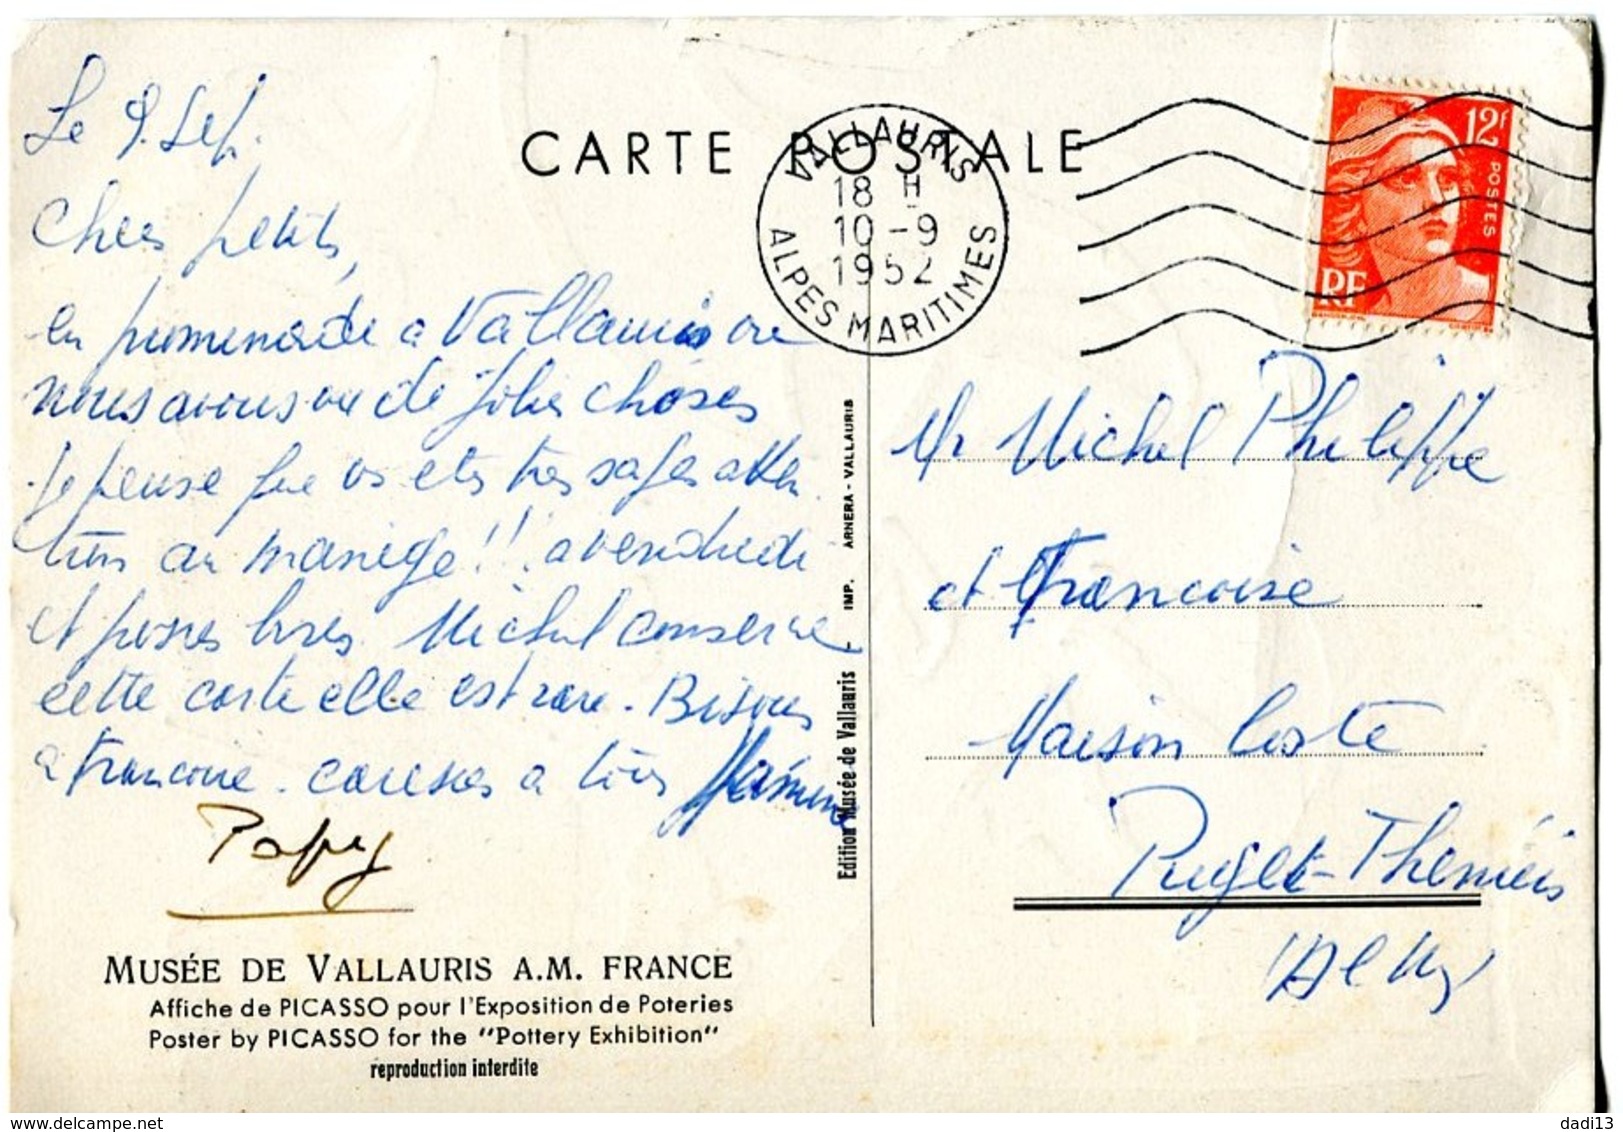 Le 9. Sep.
Chers petits,
en promenade a Vallauris ou
nous avons vu de jolies choses
je pense que vs etes tres sages atten
tion au manege!! a vendredi
et bises. Michel conserve
cette carte elle est rare. Bisous
a Francoise. caresses a tous
Papy
MUSÉE DE VALLAURIS A.M. FRANCE
Affiche de PICASSO pour l'Exposition de Poteries
Poster by PICASSO for the "Pottery Exhibition"
reproduction interdite
CARTE POSTALE
VALLAURIS
18 H
10-9
1952
ALPES MARITIMES
12f
POSTES
RF
Edition Musée de Vallauris - IMP. ARNERA - VALLAURIS
Mr Michel Philippe
et Francoise
Maison Coste
Puget-Theniers
(Al My)
delcampe.net
dadi13